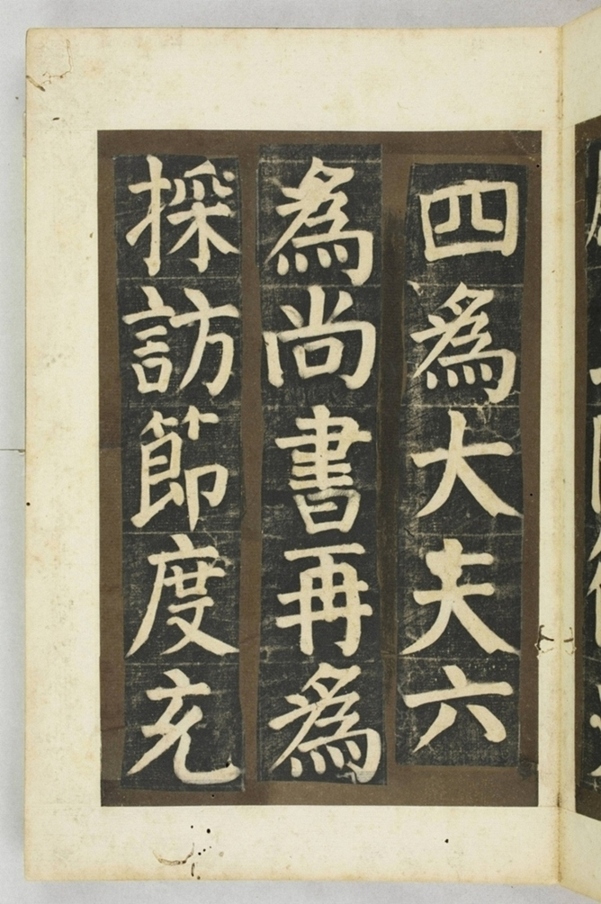 四為大夫六
為尚書再為
採訪節度充